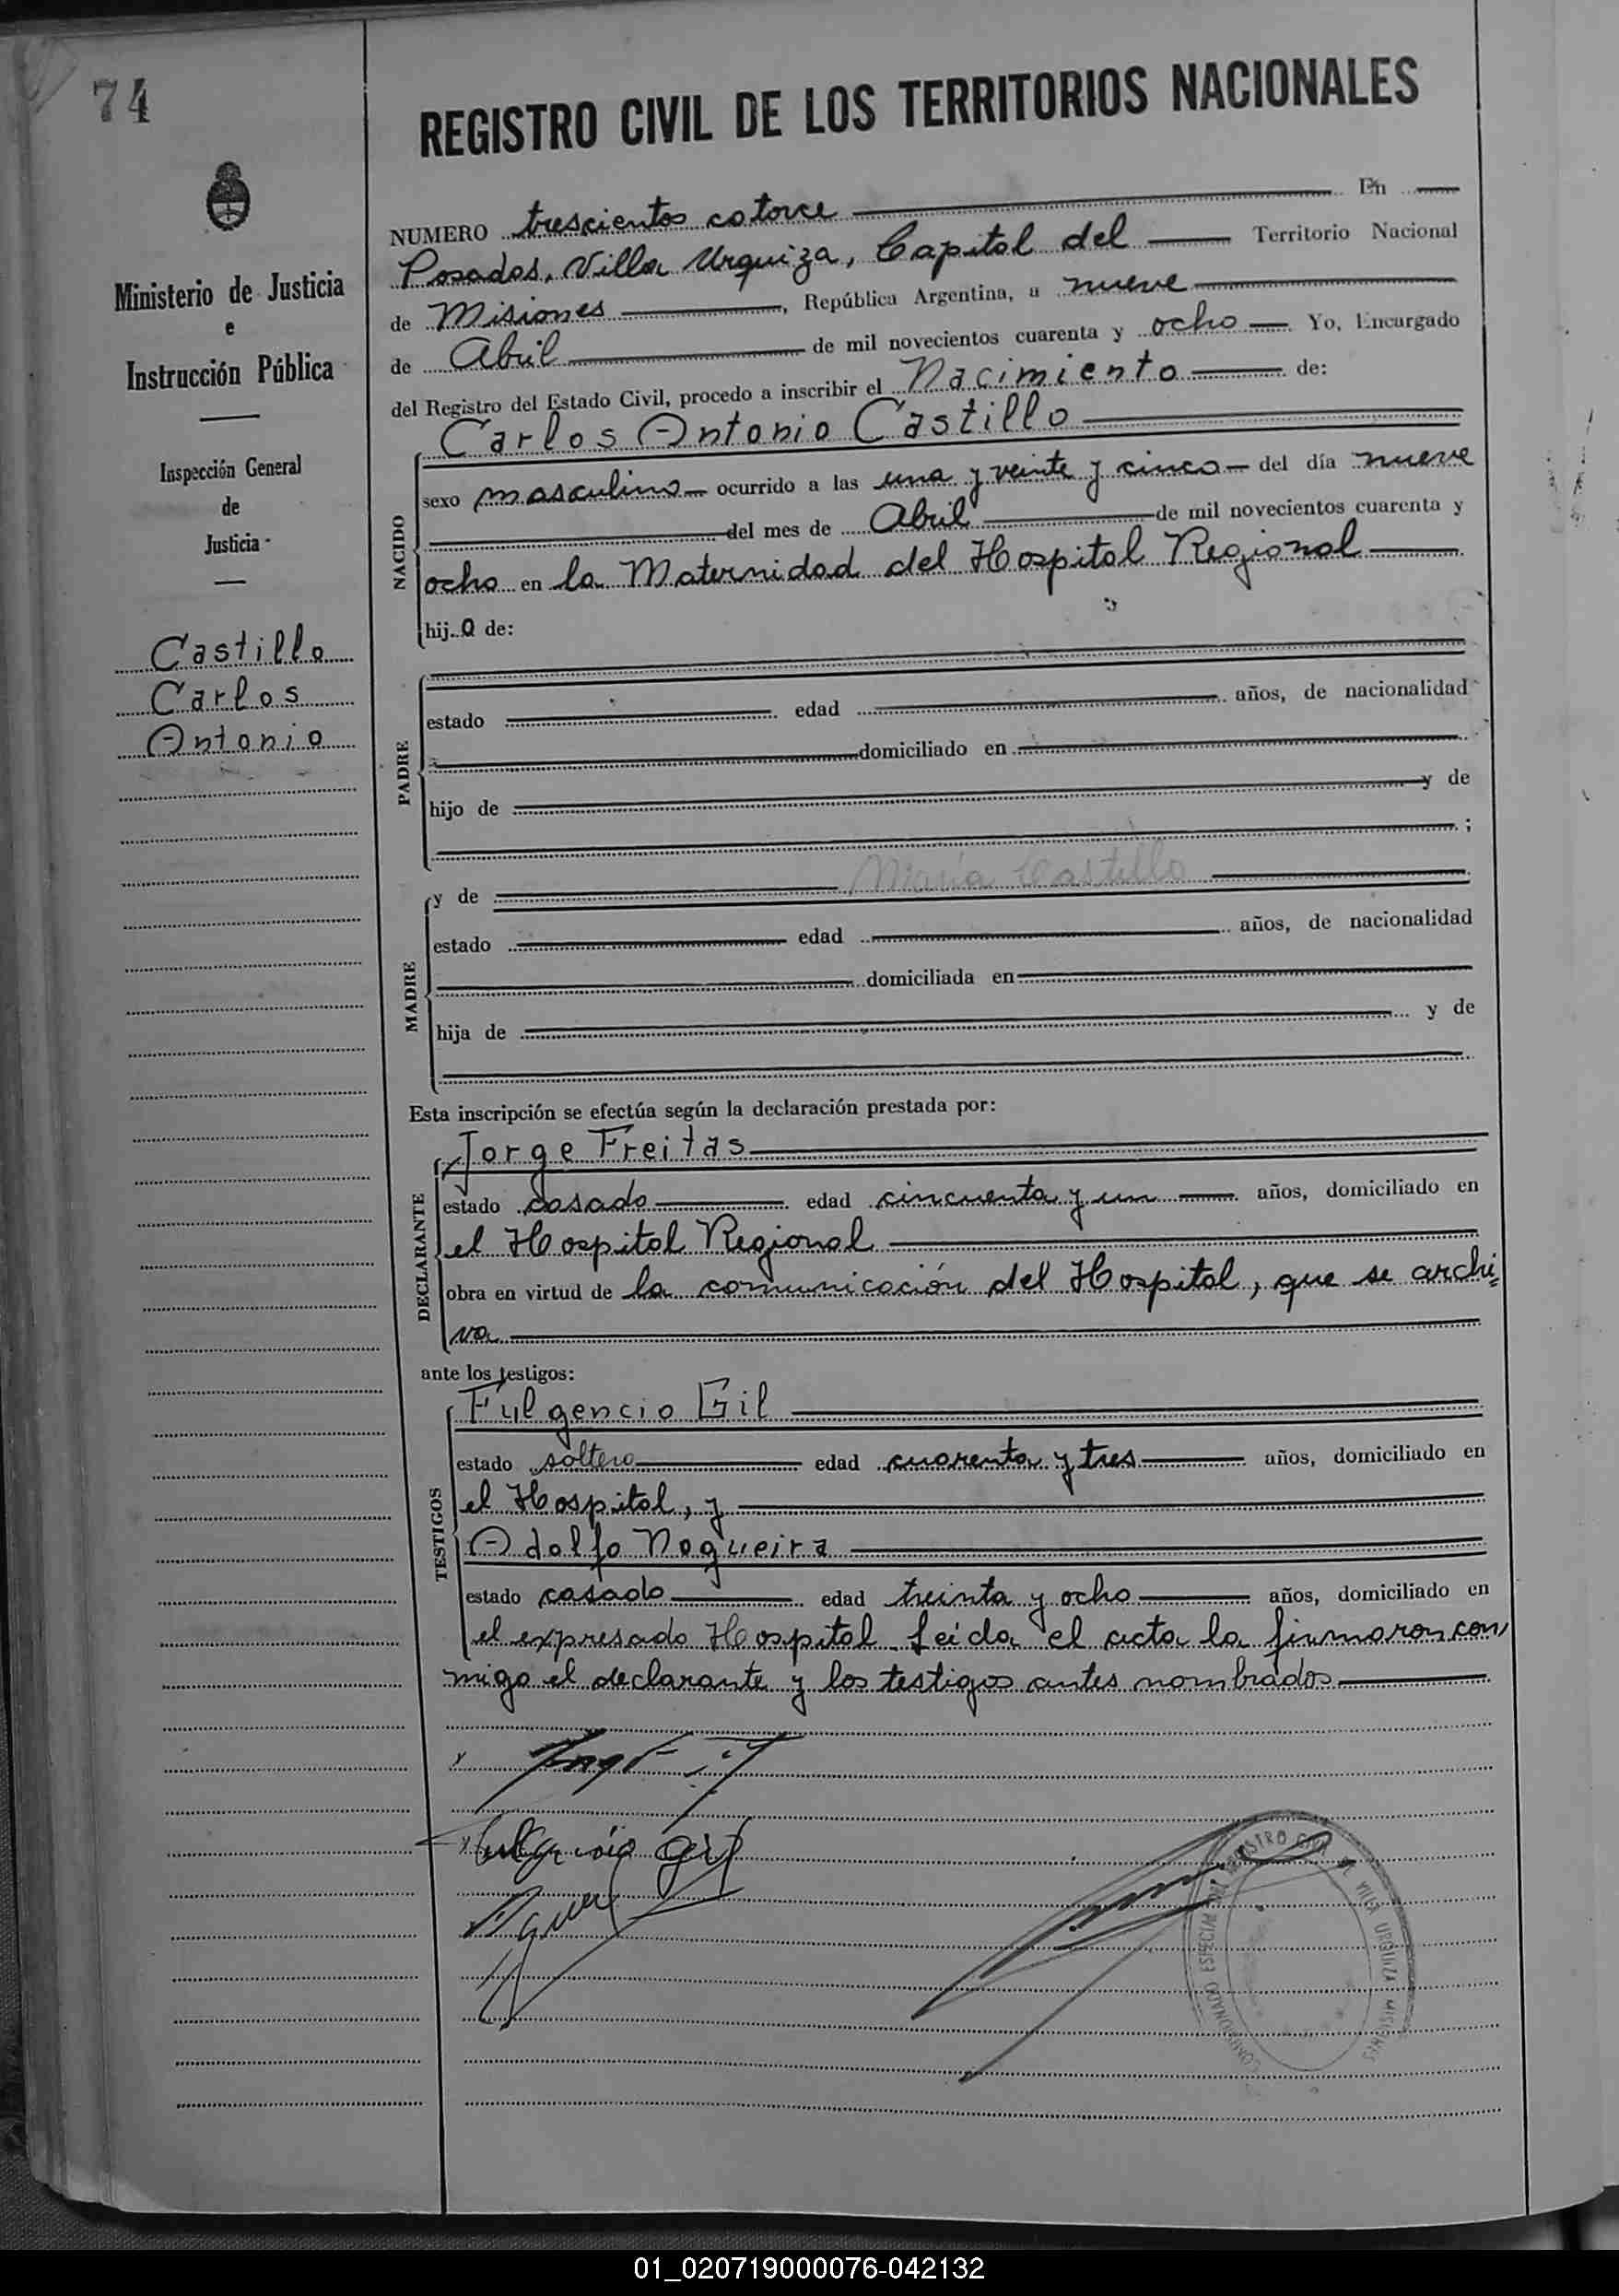 74
REGISTRO CIVIL DE LOS TERRITORIOS NACIONALES
Ministerio de Justicia
e
Instrucción Pública
Inspección General
de
Justicia
Castillo
Carlos
Antonio
NUMERO trescientos catorce En
Posadas, Villa Urquiza, Capital del Territorio Nacional
de Misiones, República Argentina, a nueve
de Abril de mil novecientos cuarenta y ocho Yo, Encargado
del Registro del Estado Civil, procedo a inscribir el Nacimiento de:
Carlos Antonio Castillo
NACIDO
sexo masculino ocurrido a las una y veinte y cinco del día nueve
del mes de Abril de mil novecientos cuarenta y
ocho en la Maternidad del Hospital Regional
hijo de:
PADRE
estado edad años, de nacionalidad
domiciliado en
hijo de y de
;
y de María Castillo
MADRE
estado edad años, de nacionalidad
domiciliada en
hija de y de
Esta inscripción se efectúa según la declaración prestada por:
Jorge Freitas
DECLARANTE
estado casado edad cincuenta y un años, domiciliado en
el Hospital Regional
obra en virtud de la comunicación del Hospital, que se archi=
va
ante los testigos:
Fulgencio Gil
TESTIGOS
estado soltero edad cuarenta y tres años, domiciliado en
el Hospital, y
Adolfo Nogueira
estado casado edad treinta y ocho años, domiciliado en
el expresado Hospital. Leida el acta la firmaron con
migo el declarante y los testigos antes nombrados
Fulgencio Gil
REGISTRO CIVIL VILLA URQUIZA MISIONES
01_020719000076-042132